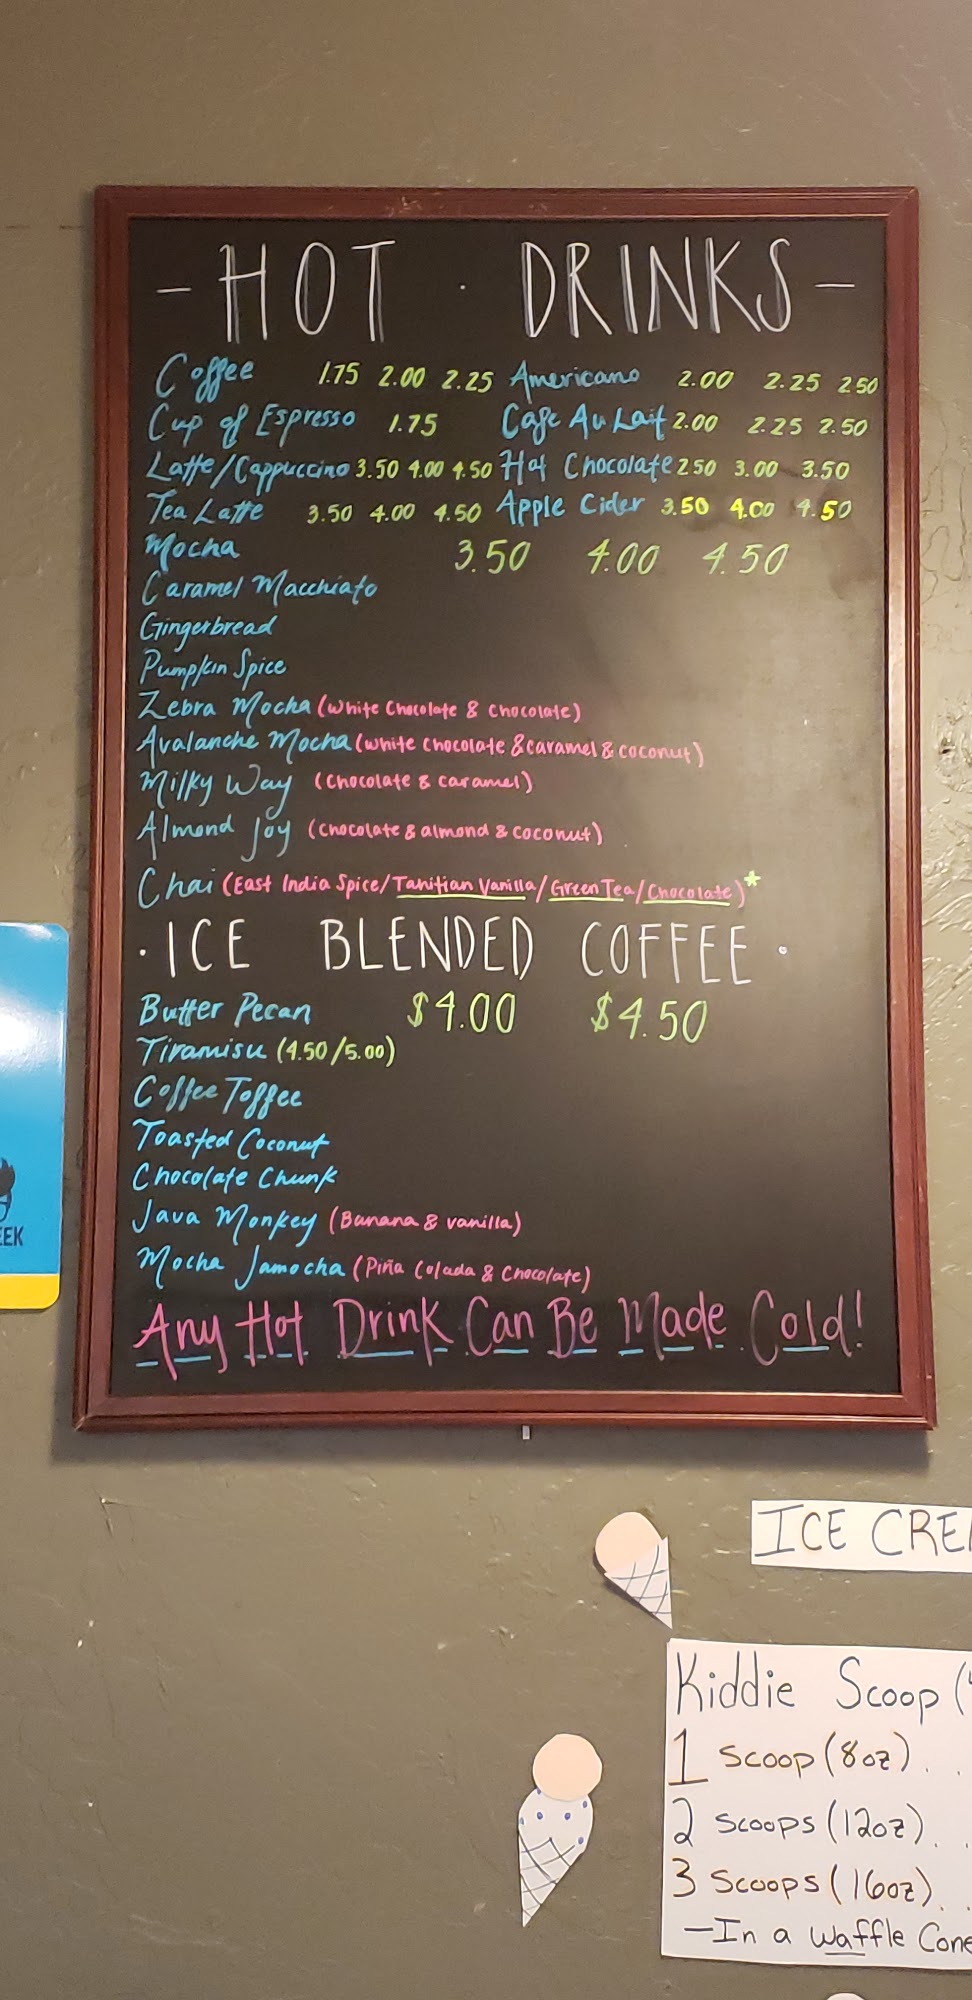 - HOT · DRINKS -
Coffee 1.75 2.00 2.25 Americano 2.00 2.25 2.50
Cup of Espresso 1.75 Cafe Au Lait 2.00 2.25 2.50
Latte/Cappuccino 3.50 4.00 4.50 Hot Chocolate 2.50 3.00 3.50
Tea Latte 3.50 4.00 4.50 Apple Cider 3.50 4.00 4.50
Mocha 3.50 4.00 4.50
Caramel Macchiato
Gingerbread
Pumpkin Spice
Zebra Mocha (White Chocolate & Chocolate)
Avalanche Mocha (White Chocolate & Caramel & Coconut)
Milky Way (Chocolate & Caramel)
Almond Joy (Chocolate & almond & Coconut)
Chai (East India Spice/Tahitian Vanilla/Green Tea/Chocolate)*
· ICE BLENDED COFFEE ·
Butter Pecan $4.00 $4.50
Tiramisu (4.50/5.00)
Coffee Toffee
Toasted Coconut
Chocolate Chunk
Java Monkey (Banana & Vanilla)
Mocha Jamocha (Piña Colada & Chocolate)
Any Hot Drink Can Be Made Cold!
EEK
ICE CREA
Kiddie Scoop (
1 Scoop (8oz) . .
2 Scoops (12oz) . .
3 Scoops (16oz) . .
- In a Waffle Cone